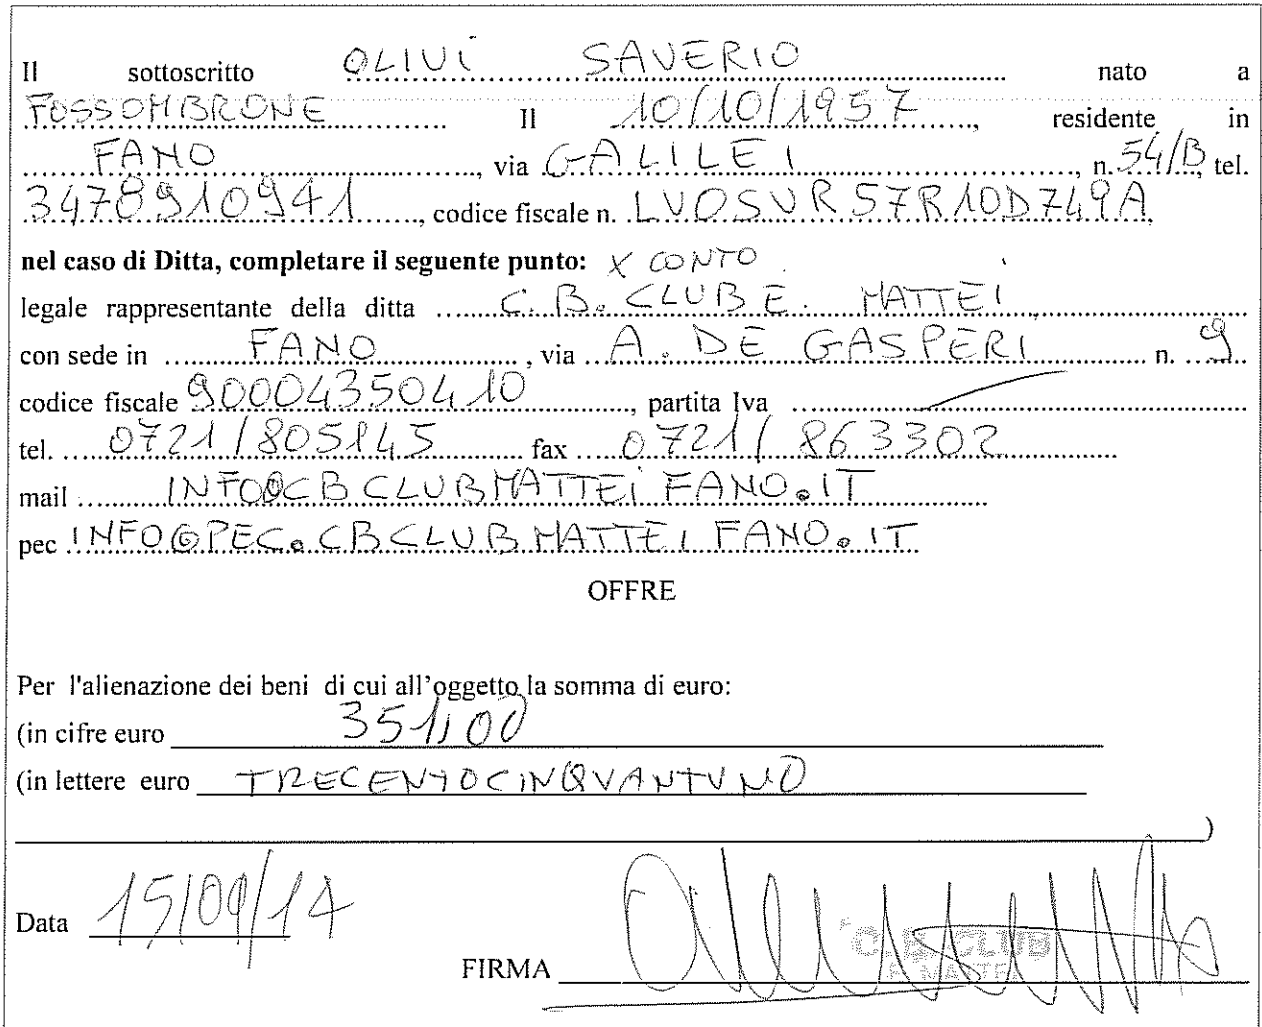 Il sottoscritto OLIVI SAVERIO nato a
FOSSOMBRONE Il 10/10/1957, residente in
FANO, via GALILEI n. 54/B, tel.
3478910941, codice fiscale n. LVOSVR57R10D749A,
nel caso di Ditta, completare il seguente punto: X CONTO
legale rappresentante della ditta C.B. CLUB E. MATTEI
con sede in FANO, via A. DE GASPERI n. 9
codice fiscale 90004350410, partita Iva
tel. 0721/805145 fax 0721/863302
mail INFO@CBCLUBMATTEIFANO.IT
pec INFO@PEC.CBCLUBMATTEIFANO.IT
OFFRE
Per l'alienazione dei beni di cui all'oggetto la somma di euro:
(in cifre euro 351,00
(in lettere euro TRECENTOCINQVANTVNO
)
Data 15/09/14
C.B. CLUB
FIRMA E. MATTEI